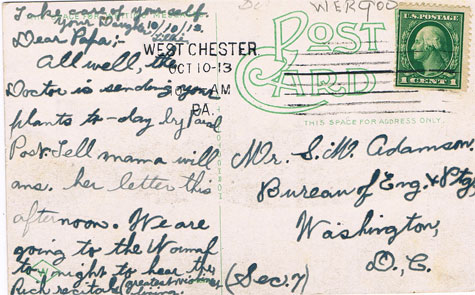 Take care of your self
Your Daugh.
10/10/13.
Dear Papa:-
All well, the
Doctor is sending your
plants to-day by Parcel
Post. Tell mama will
ans. her letter this
afternoon. We are
going to the Normal
to-night to hear the
Rich recitals (greatest
living.
WEST CHESTER
OCT 10-13
AM
PA.
POST
CARD
THIS SPACE FOR ADDRESS ONLY.
U.S. POSTAGE
1 CENT 1
Mr. S. M. Adamson.
Bureau of Eng. & Ptg.
Washington,
D.C.
(Sec. 7)